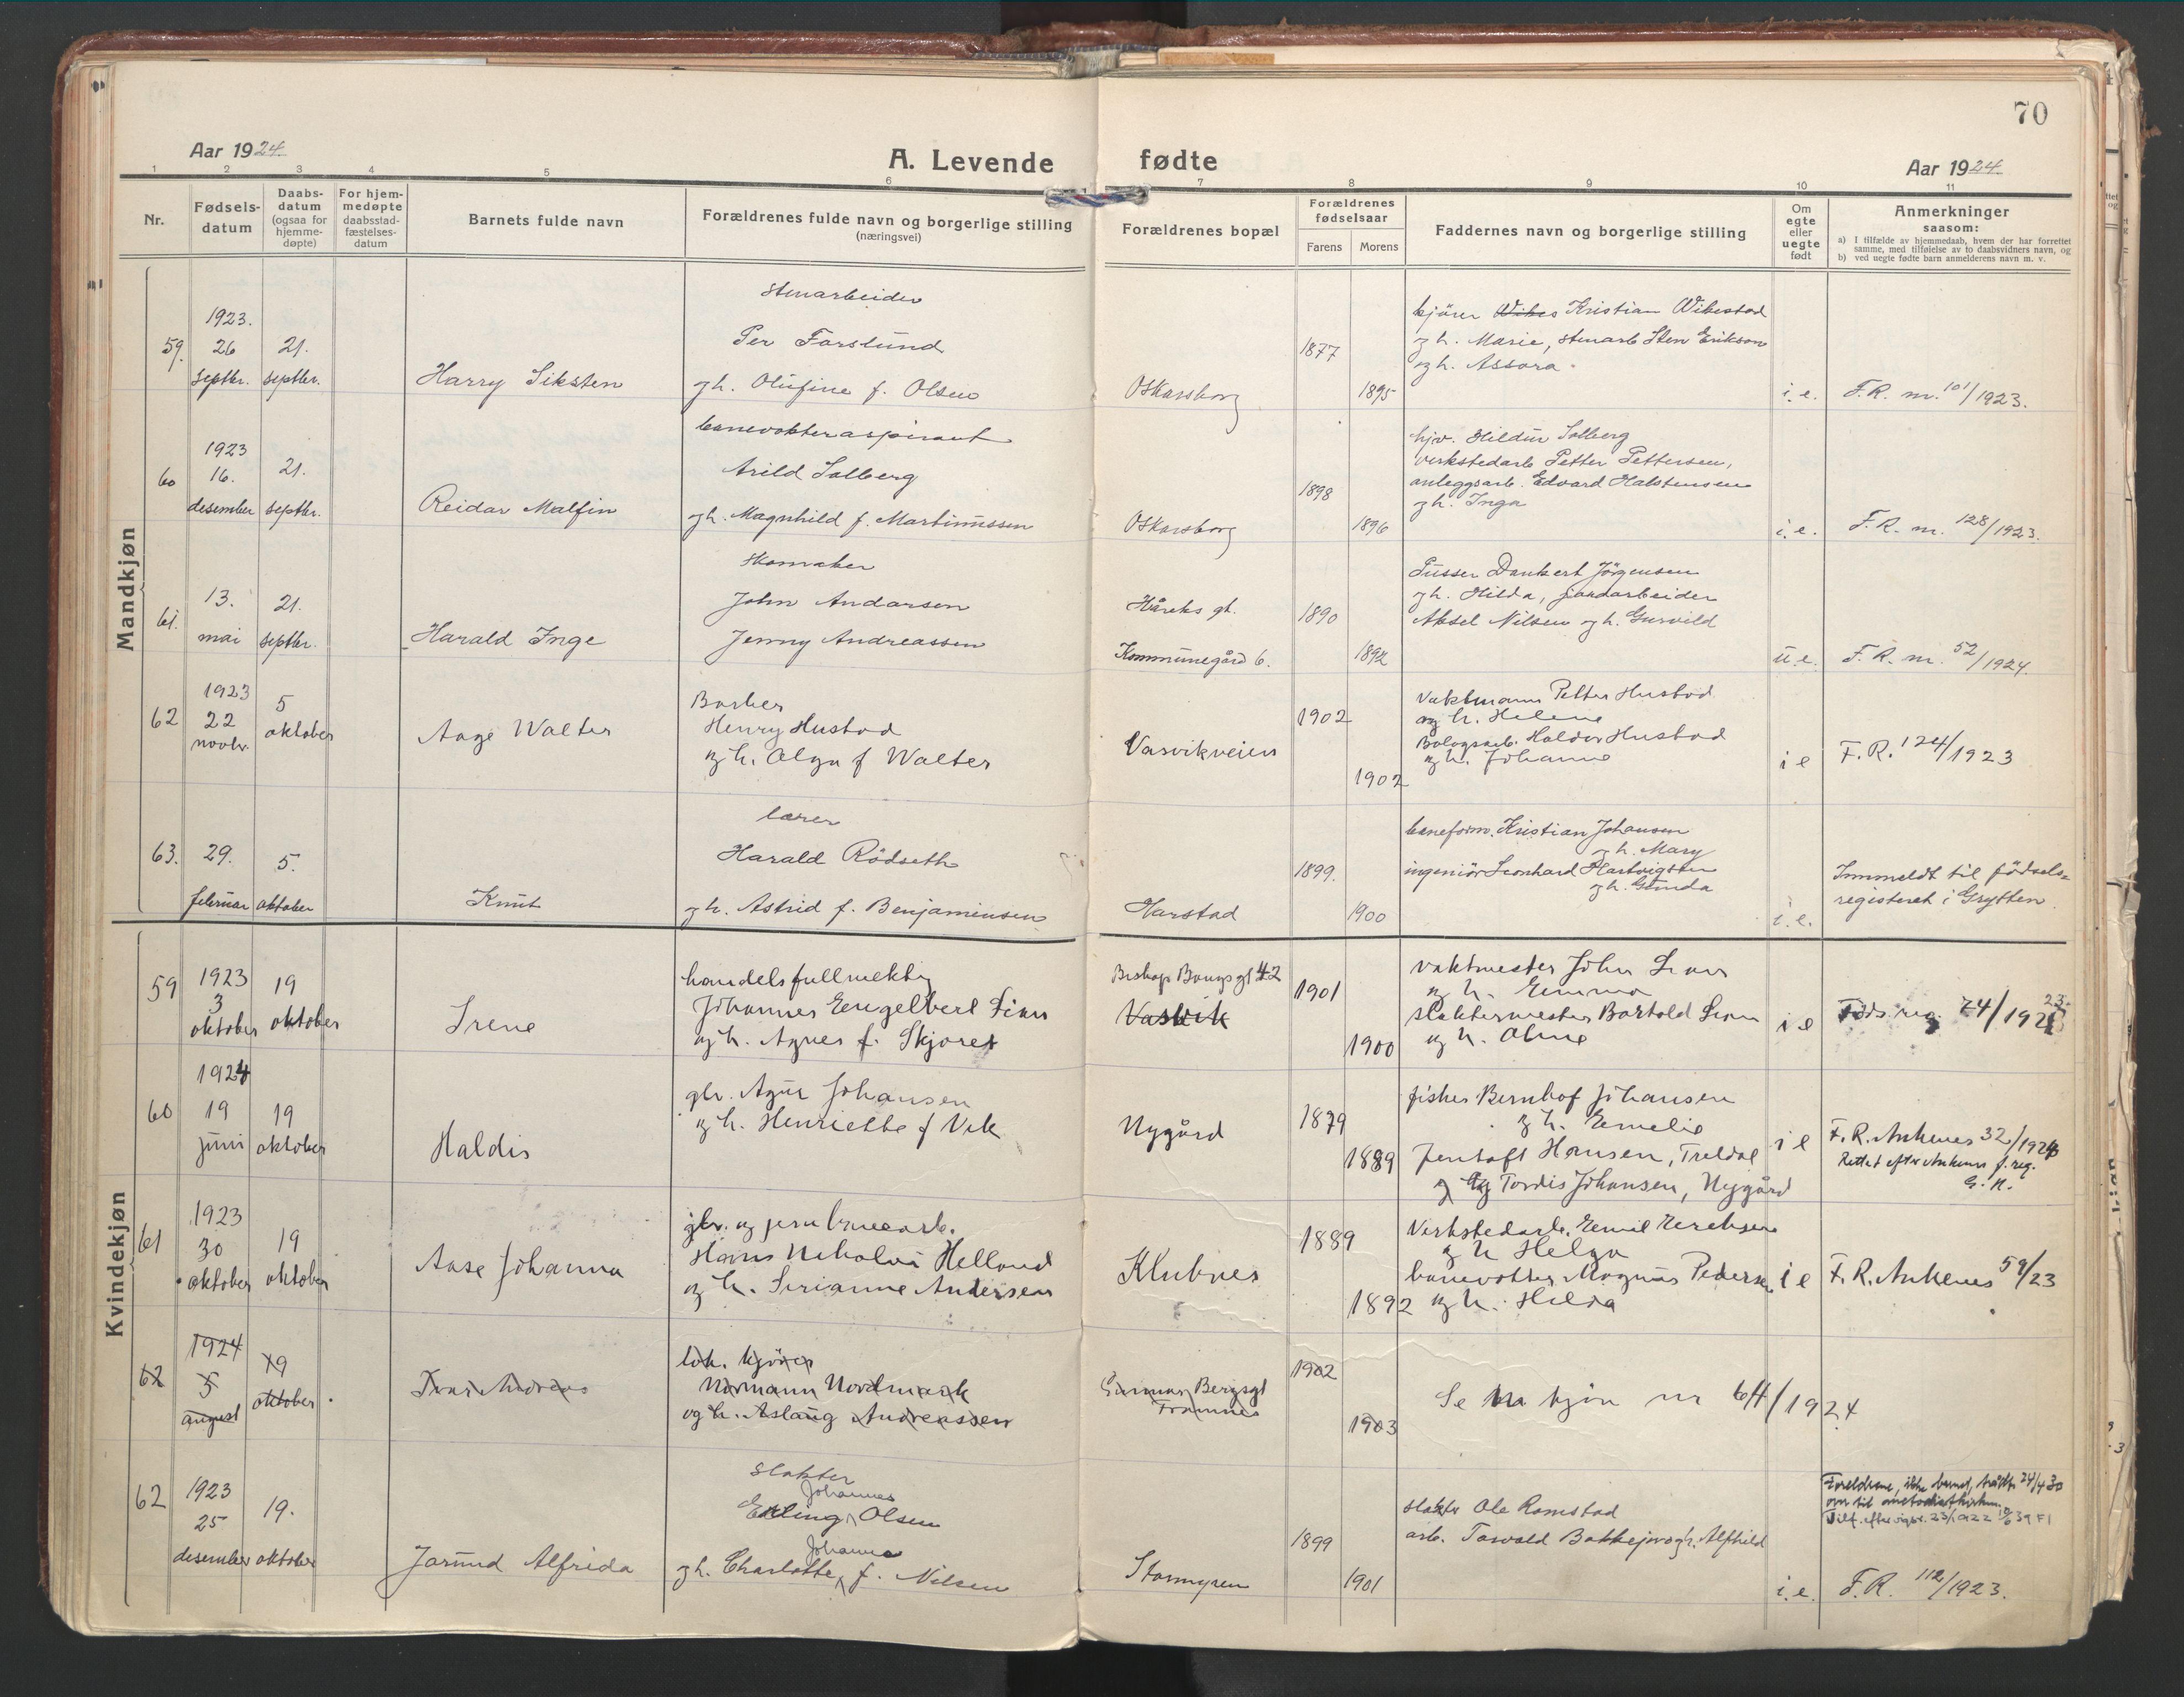 70
Aar 1924.
A. Levende fødte
Aar 1924.
1 2 3 4 5 6 7 8 9 10 11
Nr.
Fødsels-
datum
Daabs-
datum
(ogsaa for
hjemme-
døpte)
For hjem-
medøpte
daabsstad-
fæstelses-
datum
Barnets fulde navn
Forældrenes fulde navn og borgerlige stilling
(næringsvei)
Forældrenes bopæl
Forældrenes
fødselsaar
Farens
Morens
Faddernes navn og borgerlige stilling
Om
egte
eller
uegte
født
Anmerkninger
saasom:
a) I tilfælde av hjemmedaab, hvem der har forrettet
samme, med tilføielse av to daabsvidners navn, og
b) ved uegte fødte barn anmelderens navn m. v.
Mandkjøn
59.
1923.
26
septbr.
21.
septbr.
Harry Siksten
stenarbeider
Per Forslund
og h. Olufine f. Olsen
Oskarsborg
1877
1895
kjører Kristian Wibestad
og h. Marie, stenarb Sten Erikson
og h. Assora.
i. e.
F. R. m. 101/1923.
60
1923
16.
desember
21.
septbr.
Reidar Malfin
banevokteraspirant
Arild Solberg
og h. Magnhild f. Martinussen
Oskarsborg
1898
1896
hjv. Hildur Solberg
verkstedarb Petter Pettersen,
anleggsarb. Edvard Halstensen
og h. Inga
i. e.
F. R. m. 128/1923.
61.
13.
mai
21.
septbr.
Harald Inge
skomaker
John Andersen
Jenny Andreassen
Håreks gt.
Kommunegård 6.
1890
1892
Pusser Dankert Jörgensen
og h. Hilda, jordarbeider
Aksel Nilsen og h. Gurvild
u. e.
F. R. m. 52/1924.
62
1923
22
novbr.
5
oktober
Aage Walter
Barber
Henry Hustad
og h. Olga f Walter
Vasvikveien
1902
1902
Vaktmann Petter Hustad
og h. Helene
Bologsarb. Haldor Hustad
og h. Johanne
i e
F. R. 124/1923
63.
29.
februar
5.
oktober
Knut
lærer
Harald Rödseth
og h. Astrid f. Benjaminsen
Harstad
1899.
1900
baneform. Kristian Johansen
og h. Mary
ingeniör Leonhard Hartvigsten
og h. Gunda
i. e.
Innmeldt til födsels-
registeret i Grytten.
Kvindekjøn
59
1923
3
oktober
19
oktober
Irene
handelsfullmektig
Johannes Engelbert Lian
og h. Agnes f. Skjoret
Biskop Bangs gt 42
Vasvik
1901
1900
Vaktmester John Lian
og h. Emma
slaktermester Bartold Lian
og h. Oline
i e
Føds. reg. 74/1923
60
1924
19
juni
19
oktober
Haldis
gbr. Agur Johansen
og h. Henriette f Vik
Nygård
1879
1889
fisker Bernhof Johansen
og h. Emelie
Jentoft Hansen, Treldal
og Tordis Johansen, Nygård
i e
F. R. Ankenes 32/1924
Rettet efter Ankenes f. reg.
G. N.
61
1923
30
oktober
19
oktober
Aase Johanna
gbr. og jernbanearb.
Hans Nikolai Helland
og h. Sirianne Andersen
Klubnes
1889
1892
Verkstedarb. Emil Eerchsen
og h Helga
banevokter Magnus Pedersen
og h. Hilda
i e
F. R. Ankenes 59/23
62
1924
5
august
19
oktober
Ivar Andreas
lok. kjører
Normann Nordmark
og h. Aslaug Andreassen
Gunnar Bergsgt
Framnes
1902
1903
Se kjön nr 64/1924
62
1923
25
desember
19.
oktober
Jorund Alfrida
slakter
Johannes
Erling Olsen
Johanne
og h. Charlotte f. Nilsen
Stormyren
1899
1901
slakter Ole Ramstad
arb. Torvald Bakkejord og h. Alfhild
i. e.
Foreldrene, ikke barnet, trådt 24/4 30
over til metodistkirken.
F. R. 112/1923.